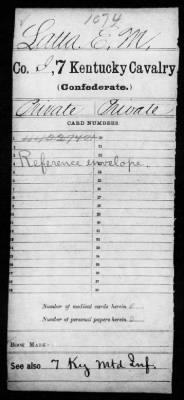 1074
Latta, E. M.
Co. I, 7 Kentucky Cavalry
(Confederate.)
Private Private
CARD NUMBERS.
Reference envelope.
Number of medical cards herein 0
Number of personal papers herein 0
BOOK MARK:
See also 7 Ky Mtd Inf.